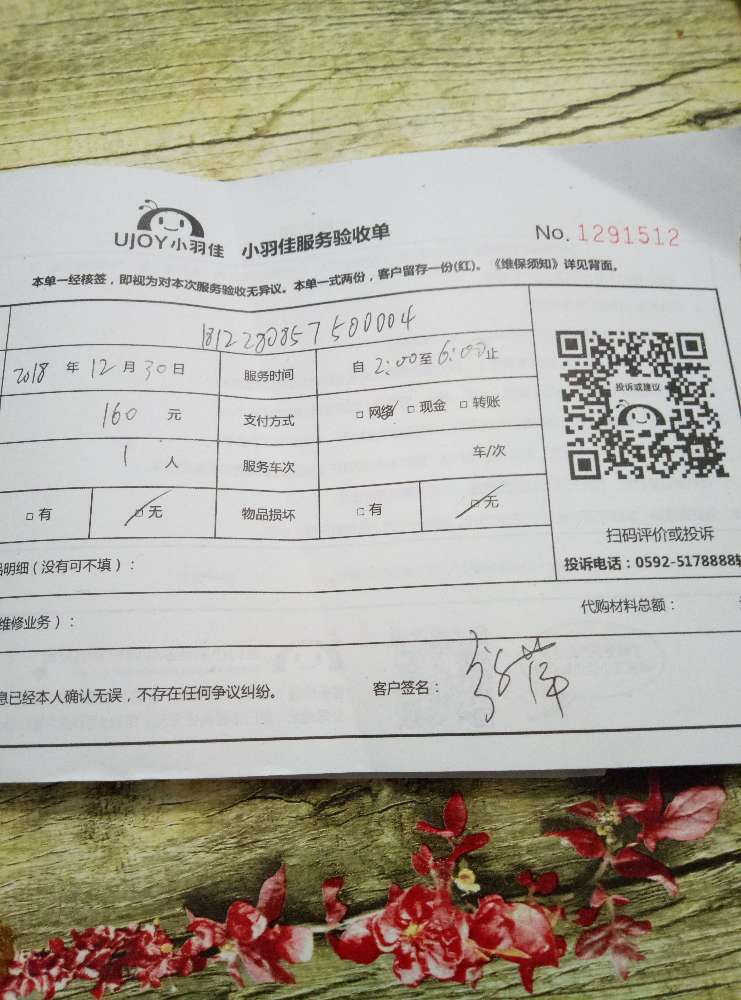 UJOY小羽佳 小羽佳服务验收单 No. 1291512
本单一经核签，即视为对本次服务验收无异议。本单一式两份，客户留存一份(红)。《维保须知》详见背面。
1812280857500004
2018 年 12 月 30 日 服务时间 自 2:00 至 6:00 止
160 元 支付方式 □ 网络 □ 现金 □ 转账
1 人 服务车次 车/次
□ 有 □ 无 物品损坏 □ 有 □ 无
投诉或建议
扫码评价或投诉
投诉电话：0592-5178888转
明细（没有可不填）：
代购材料总额：
维修业务）：
息已经本人确认无误，不存在任何争议纠纷。 客户签名：